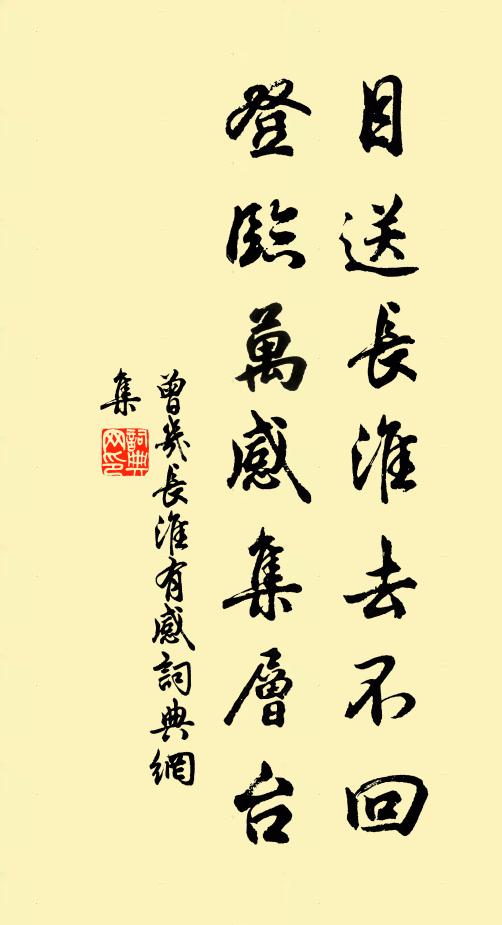 目送長淮去不回
登臨萬感集層台
曾幾長淮有感詞典網
集
詞典网印